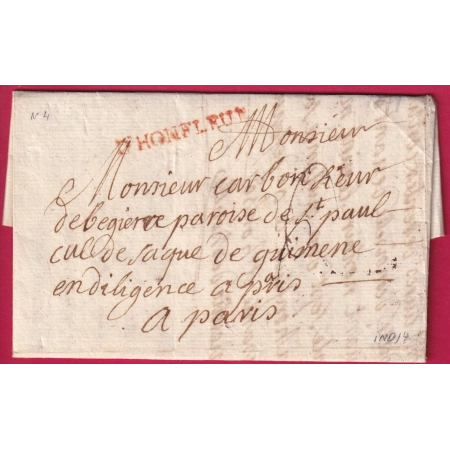 N 4
HONFLEUR
Monsieur
Monsieur carbon
de begiere paroise de St paul
cul de saque de guimene
en diligence a pris
a paris
IND 14